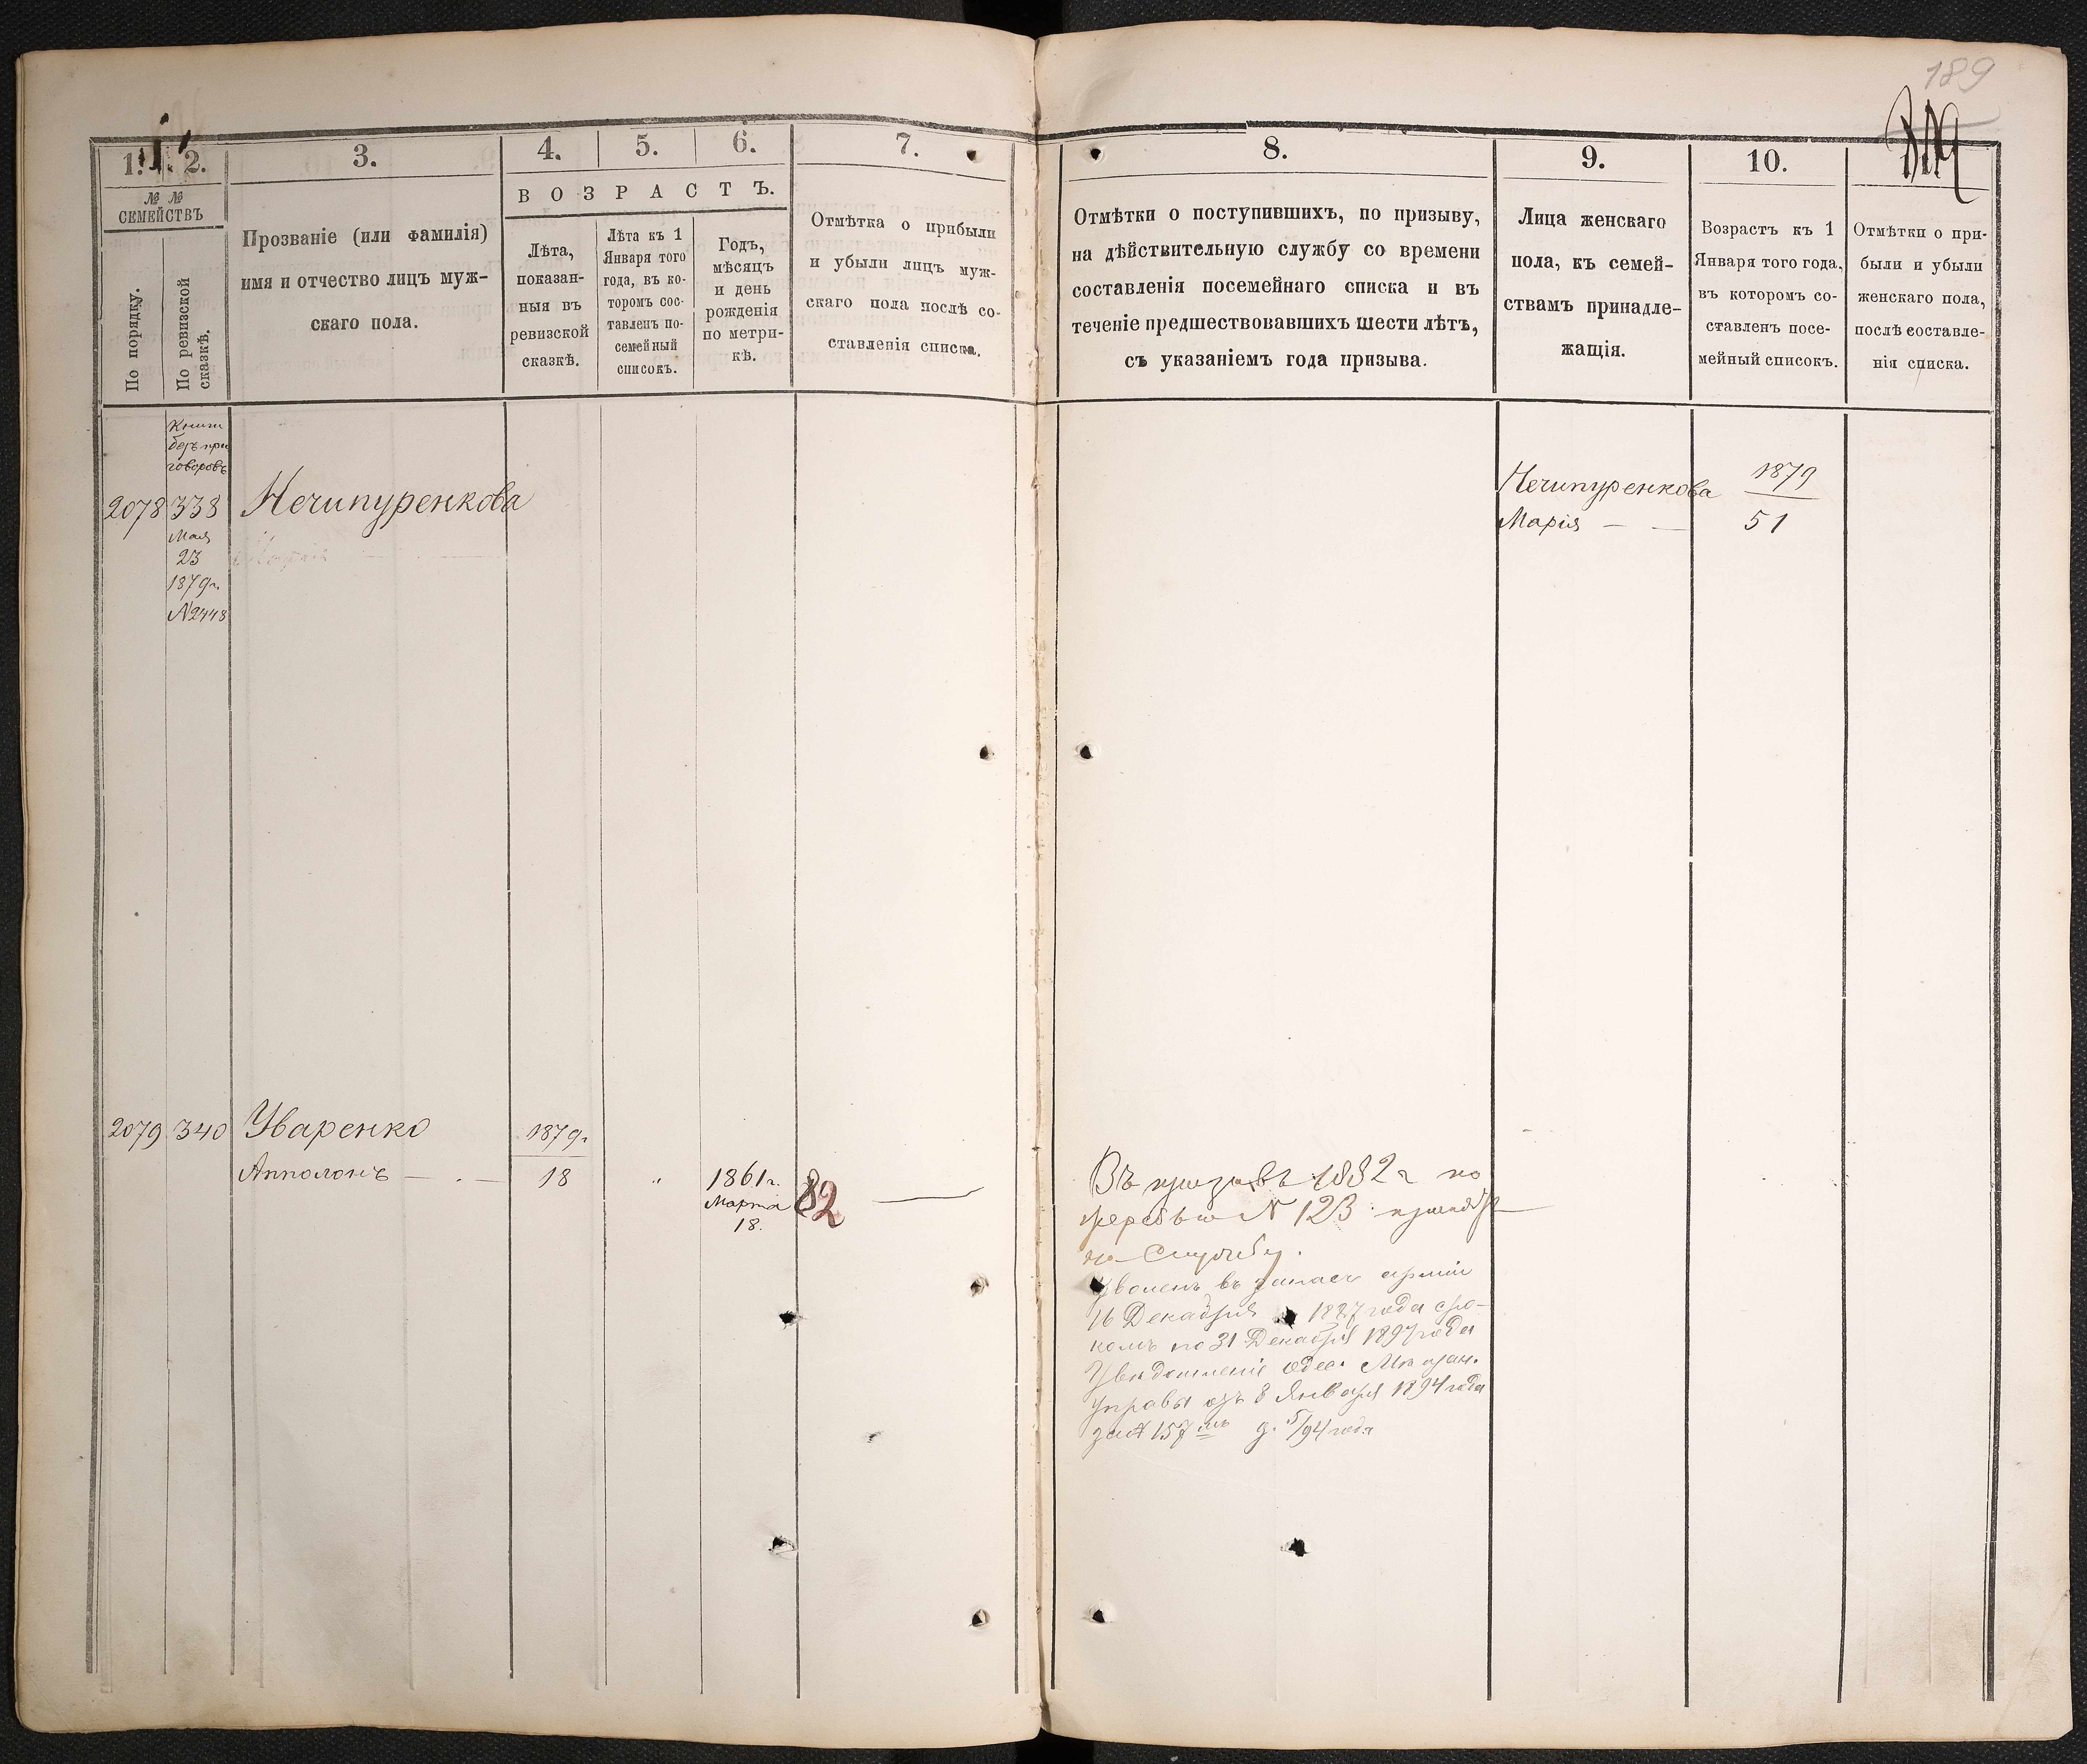 189
1.
2.
3.
4.
5.
6.
7.
№ №
СЕМЕЙСТВЪ
По порядку.
По ревизской
сказкѣ.
Прозваніе (или фамилія)
имя и отчество лицъ муж-
скаго пола.
ВОЗРАСТЪ.
Лѣта,
показан-
ныя въ
ревизской
сказкѣ.
Лѣта къ 1
Января того
года, въ ко-
торомъ сос-
тавленъ по-
семейный
списокъ.
Годъ,
мѣсяцъ
и день
рожденія
по метри-
кѣ.
Отмѣтка о прибыли
и убыли лицъ муж-
скаго пола послѣ со-
ставленія списка.
8.
9.
10.
Отмѣтки о поступившихъ, по призыву,
на дѣйствительную службу со времени
составленія посемейнаго списка и въ
теченіе предшествовавшихъ шести лѣтъ,
съ указаніемъ года призыва.
Лица женскаго
пола, къ семей-
ствамъ принадле-
жащія.
Возрастъ къ 1
Января того года,
въ которомъ со-
ставленъ посе-
мейный списокъ.
Отмѣтки о при-
были и убыли
женскаго пола,
послѣ составле-
нія списка.
безъ при
говоровъ
2078 338 Нечипуренкова
Мая
23
1879 г.
№2448
Нечипуренкова 1879
Марія — — 51
2079 340 Уваренко 1879 г
Апполонъ — . — 18 " 1861 г.
Марта
18.
82
Въ призывъ 1882 г по
жеребью № 123 принятъ
на Службу.
Уволенъ въ запасъ арміи
16 Декабря 1887 года сро-
комъ по 31 Декабря 1897 года
Увѣдомленіе Одес. Мѣщан.
Управы отъ 8 Января 1894 года
за № 157 д. 5/94 года